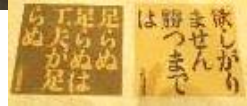 欲しがり
ません
勝つまで
は
足らぬ
足らぬは
工夫が足
らぬ